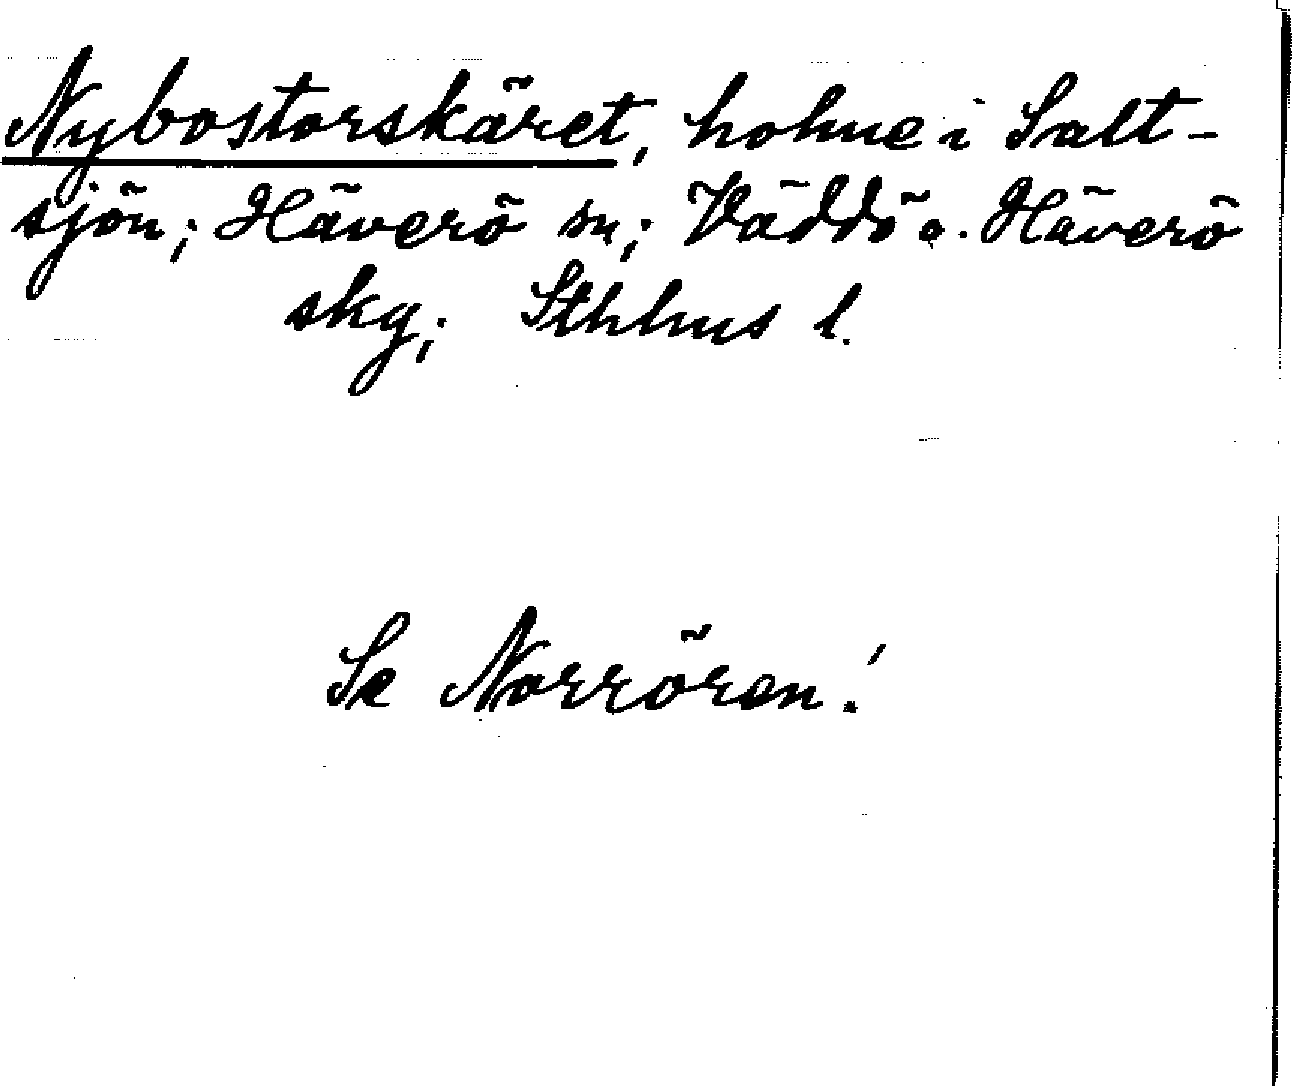 Nybostorskäret, holme i Salt-
sjön; Häverö sn; Väddö o. Häverö
skg; Sthlms l.
Se Norrören!